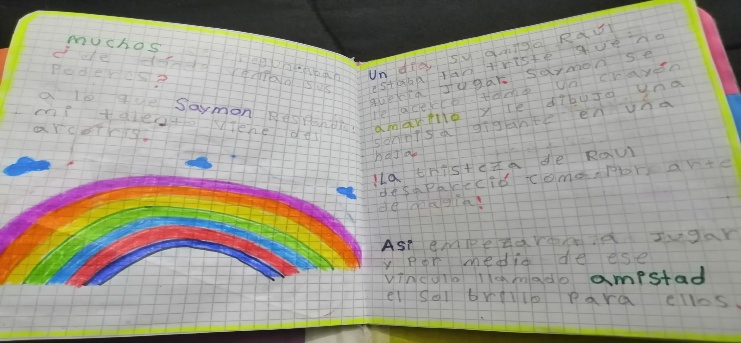 muchos se preguntaban
¿de dónde venían sus
Poderes?
a lo que Saymon Respondió:
mi talento viene del
arcoíris.
Un día su amigo Raúl
estaba tan triste que no
quería Jugar. Saymon se
le acercó tomó un crayón
amarillo y le dibujo una
sonrisa gigante en una
hoja.
¡La tristeza de Raúl
desapareció como Por arte
de magia!
Así empezaron a Jugar
y Por medio de ese
vínculo llamado amistad
el sol brillo Para ellos.